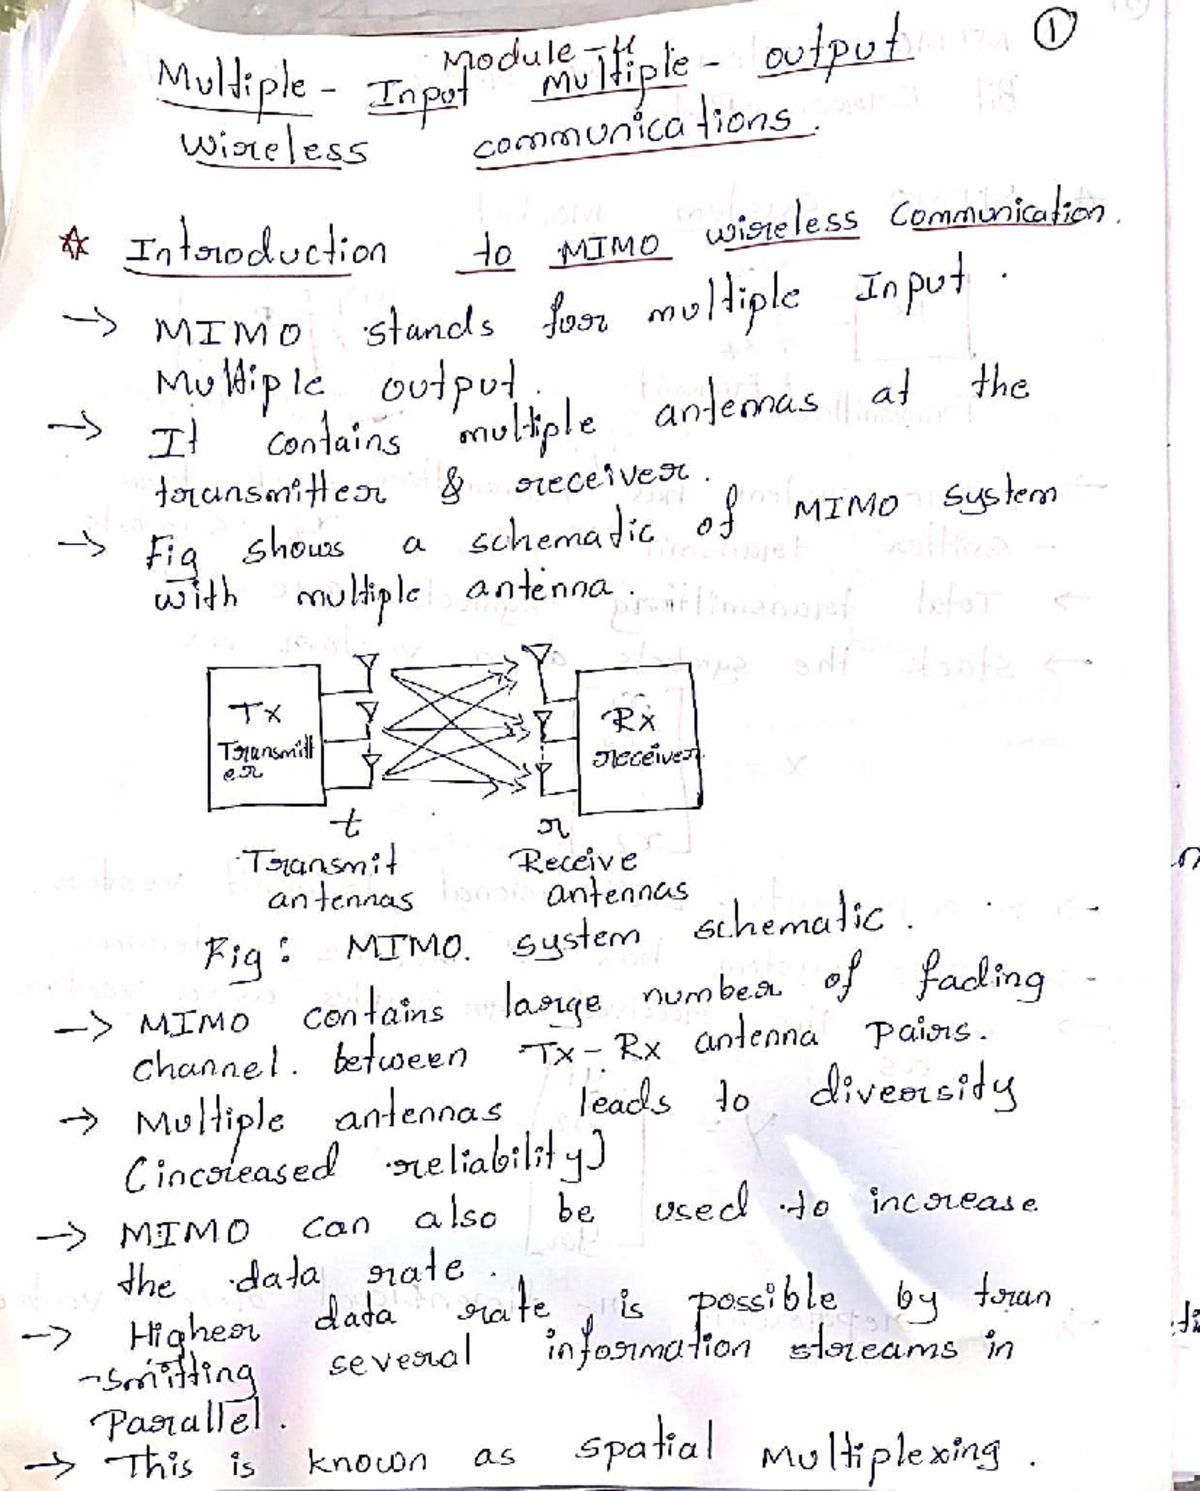 1
Module-II
Multiple-Input Multiple-output
wireless communications.
Introduction to MIMO wireless Communication.
→ MIMO stands for multiple Input
Multiple output.
→ It contains multiple antennas at the
transmitter & receiver.
→ Fig shows a schematic of MIMO system
with multiple antenna.
Tx
Transmitt
er
Rx
receiver
t
r
Transmit
antennas
Receive
antennas
Fig: MIMO. system schematic.
→ MIMO contains large number of fading
channel. between Tx-Rx antenna Pairs.
→ Multiple antennas leads to diversity
(increased reliability)
→ MIMO can also be used to increase
the data rate.
→ Higher data rate is possible by tran
-smitting several information streams in
Parallel.
→ This is known as spatial Multiplexing.